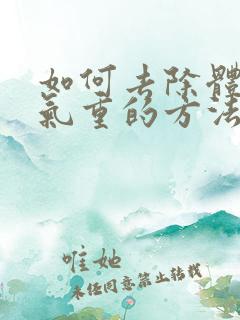 如何去除體
氣重的方法
唯她
未任同意禁止转载